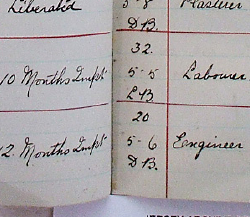 Liberated 5-8 Plasterer
D B.
32.
10 Months Impt 5-5 Labourer
L B
20
12. Months Impt 5-6 Engineer
D B.